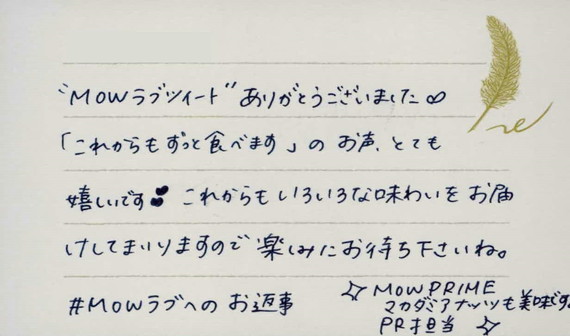 “MOWラブツイート”ありがとうございました∞
「これからもずっと食べます」の お声、とても
嬉しいです❣ これからもいろいろな味わいを お届
けしてまいりますので 楽しみにお待ち下さいね。
#MOWラブへの お返事
✧ MOW PRIME
マカダミアナッツも美味です。
PR担当 ✧